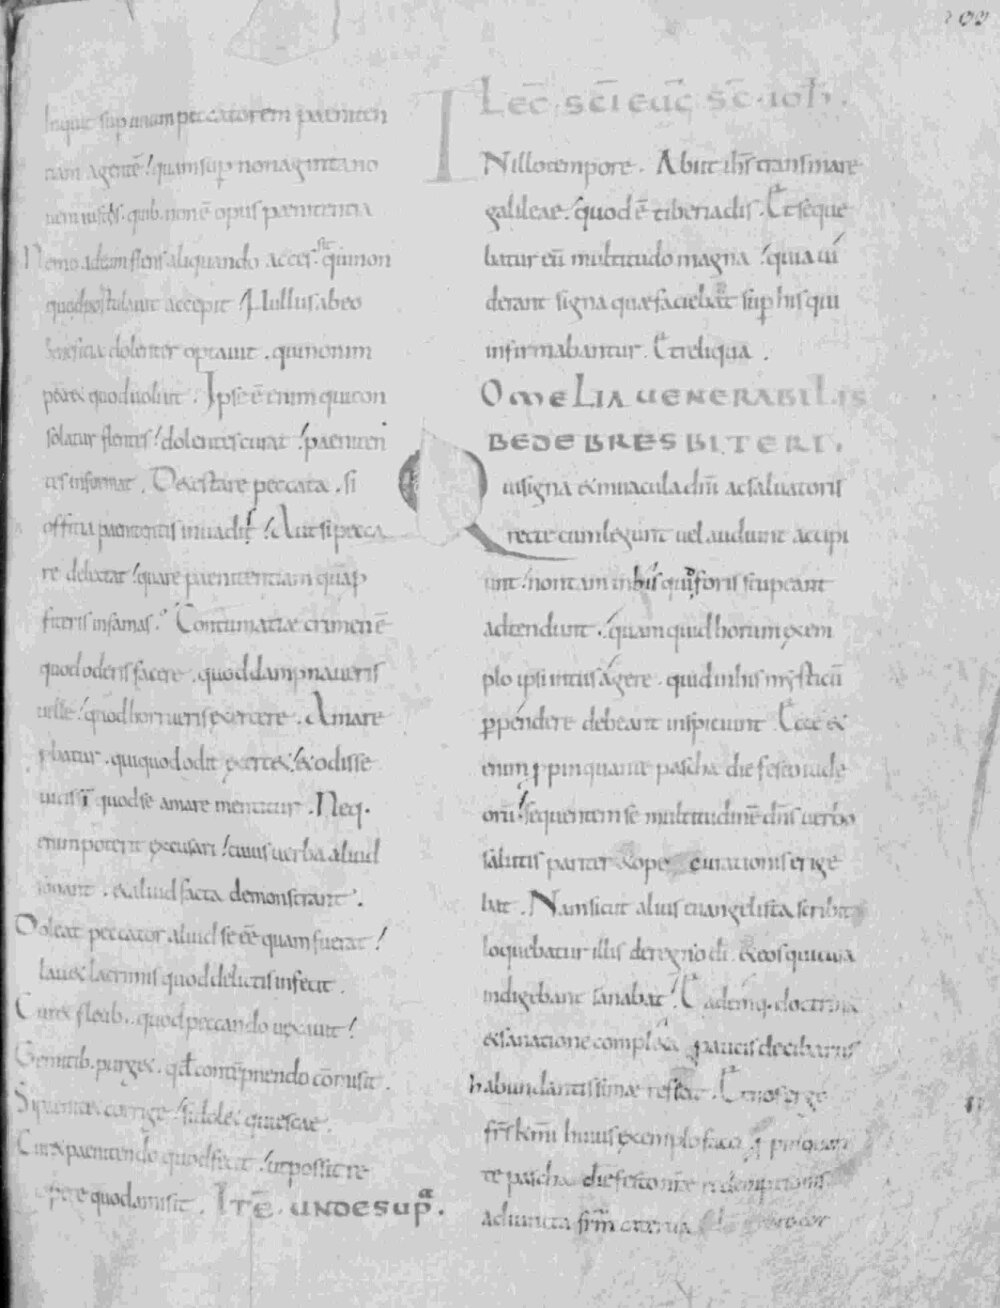 Inquit sup unum peccatorem paeniten
tiam agentē quam sup nonaginta no
uem iustos quib. non ē opus paenitentia
Nemo ad eum flens aliquando acces sit qui non
quod postulauit accepit. Nullus ab eo
beneficia dolenter optauit. qui non im
petret quod uoluit. Ipse ē enim qui con
solatur flentes dolentes curat paeniten
tes informat. Detestare peccata. si
officia paenitentis inuadis Aut si pecca
re delectat quare paenitentiam
infamas. Contumaciae crimen ē
quod oderis facere. quod dampnaueris
uelle quod horrueris exercere. Amare
pbatur. qui quod odit exercet & odisse
quod se amare mentitur. Neq.
enim poterit excusari cuius uerba aliud
sonant. & aliud facta demonstrant.
Doleat peccator aliud se eē quam fuerat
lauet lacrimis quod delictis infecit.
Curet fletib. quod peccando uexauit
Gemitib. purget. qđ contēpnendo corrusit.
corrige si dolet quiescat
Curet paenitendo quod fecit ut possit re
cipere quod amisit. ITĒ. UNDE SUP̄.
LEC̄. SC̄I EUḠ SC̄. IOH̄.
IN illo tempore. Abiit ih̄s trans mare
galileae. quod ē tiberiadis. Et seque
batur eū multitudo magna quia ui
derant signa quae faciebat sup his qui
infirmabantur. Et reliqua.
OMELIA UENERABILIS
BEDE BRESBITERI.
Qui signa & miracula dn̄i ac saluatoris
recte cum legunt uel audiunt accipi
unt. non tam in his quid foris stupeant
adtendunt. quam quid horum exem
plo ipsi intus agere. quid in his mysticū
ppendere debeant inspiciunt Ecce &
enim ppinquante pascha die festo iude
orū sequentem se multitudinē dn̄s uerbo
salutis pariter & ope curationis erige
bat. Nam sicut alius euangelista scribit
loquebatur illis de regno dī. & eos qui cura
indigebant sanabat. Eademq. doctrina
& sanatione completa paucis de cibariis
habundantissimae refecit. Et nos ergo
fr̄s km̄i huius exemplo facto ppinquan
te pascha die festo nr̄ae redemptionis
adiuncta